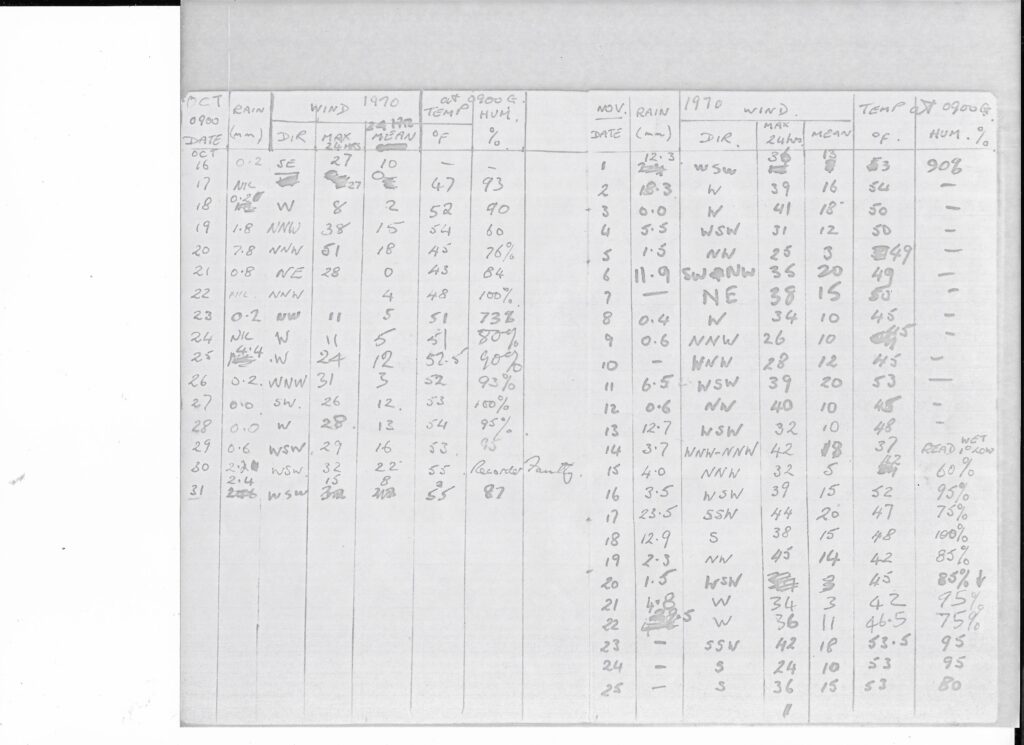 OCT 0900 DATE RAIN (mm) WIND 1970 DIR MAX 24 HRS 24 HR MEAN TEMP at 0900 G. °F HUM. %
OCT
16 0.2 SE 27 10 — —
17 NIL 27 0 47 93
18 0.2 W 8 2 52 90
19 1.8 NNW 38 15 54 60
20 7.8 NNW 51 18 45 76%
21 0.8 NE 28 0 43 84
22 NIL NNW 4 48 100%
23 0.2 NW 11 5 51 73%
24 NIL W 11 5 51 80%
25 4.4 W 24 12 52.5 90%
26 0.2 WNW 31 3 52 93%
27 0.0 SW. 26 12. 53 100%
28 0.0 W 28 13 54 95%
29 0.6 WSW 29 16 53 95
30 WSW 32 22 55 Recorder Faulty
31 2.4 WSW 15 8 55 87
NOV. DATE RAIN (mm) 1970 WIND. DIR. MAX 24 hrs MEAN TEMP at 0900 G. °F. HUM. %
1 12.3 WSW 36 13 53 90%
2 18.3 W 39 16 54 —
3 0.0 W 41 18 50 —
4 5.5 WSW 31 12 50 —
5 1.5 NW 25 3 49 —
6 11.9 SW NW 35 20 49 —
7 — NE 38 15 50 —
8 0.4 W 34 10 45 —
9 0.6 NNW 26 10 45 —
10 — WNW 28 12 45 —
11 6.5 WSW 39 20 53 —
12 0.6 NW 40 10 45 —
13 12.7 WSW 32 10 48 —
14 3.7 NNW-NNW 42 18 37 READ WET TO LOW
15 4.0 NNW 32 5 42 60%
16 3.5 WSW 39 15 52 95%
17 23.5 SSW 44 20 47 75%
18 12.9 S 38 15 48 100%
19 2.3 NW 45 14 42 85%
20 1.5 WSW 3 45 85%
21 4.8 W 34 3 42 95%
22 W 36 11 46.5 75%
23 — SSW 42 18 53.5 95
24 — S 24 10 53 95
25 — S 36 15 53 80
11